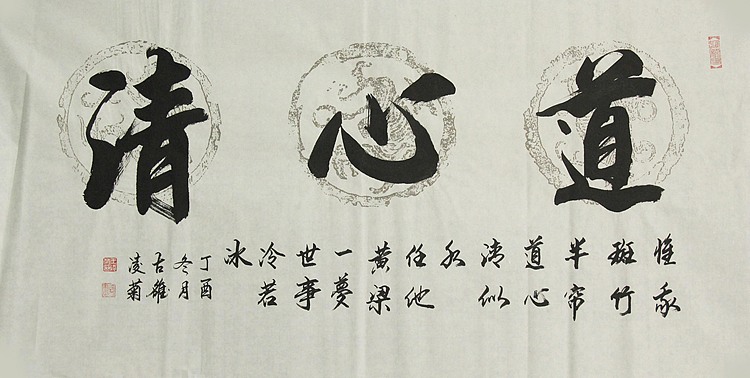 道心清
惟我
斑竹
半帘
道心
清似
水
任他
黄粱
一夢
世事
冷若
冰
丁酉
冬月
古雍
凌菊